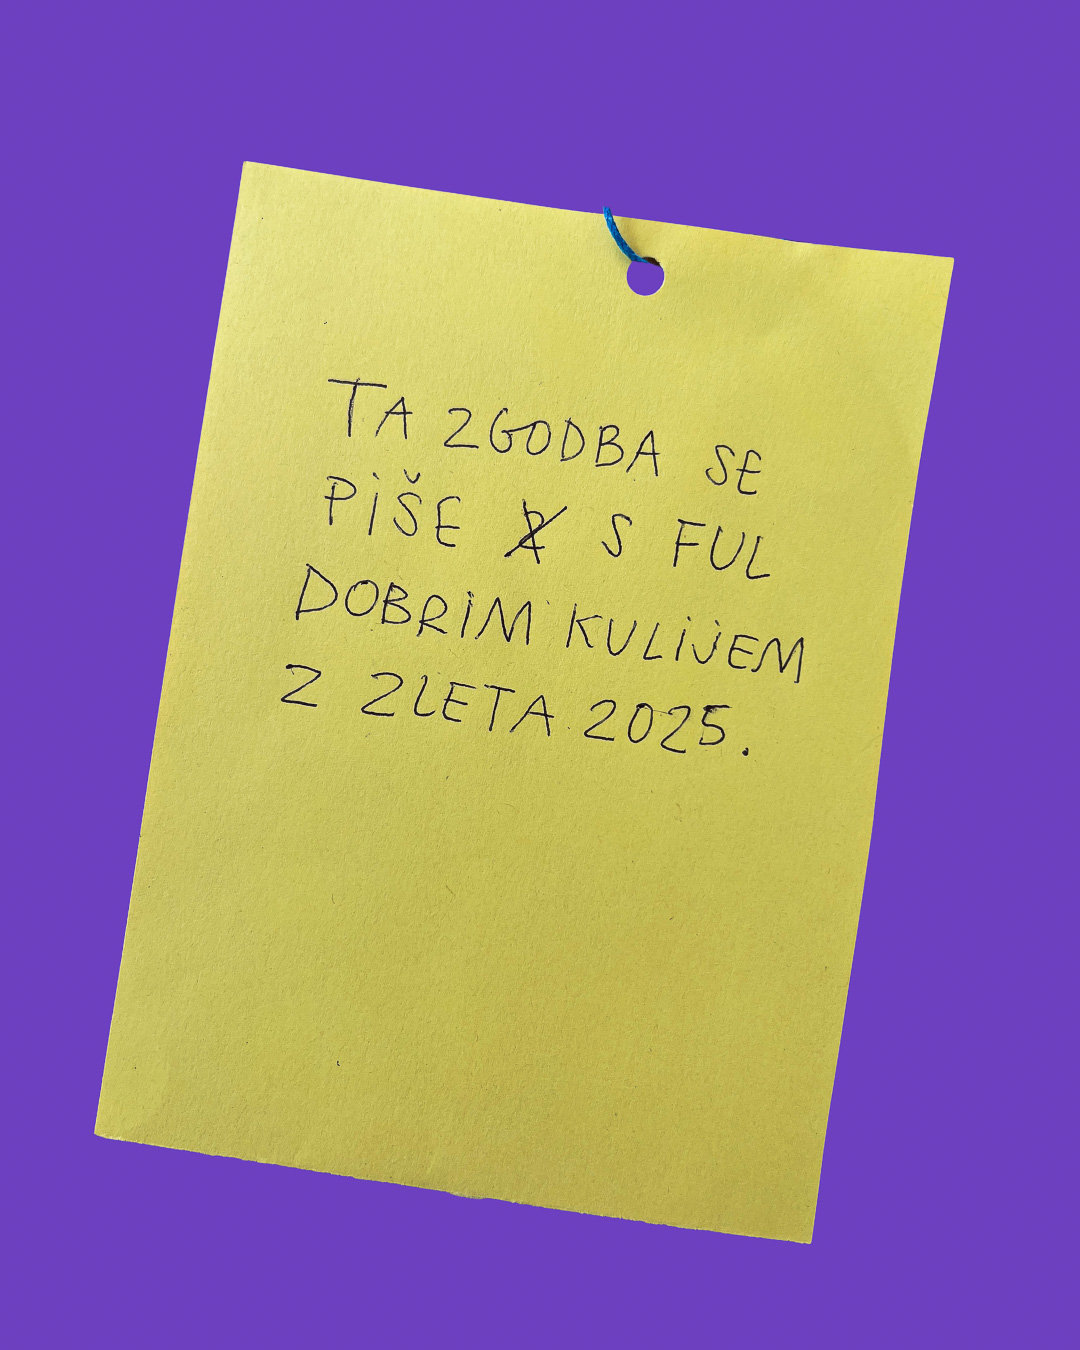 TA ZGODBA SE
PIŠE S FUL
DOBRIM KULIJEM
Z ZLETA 2025.